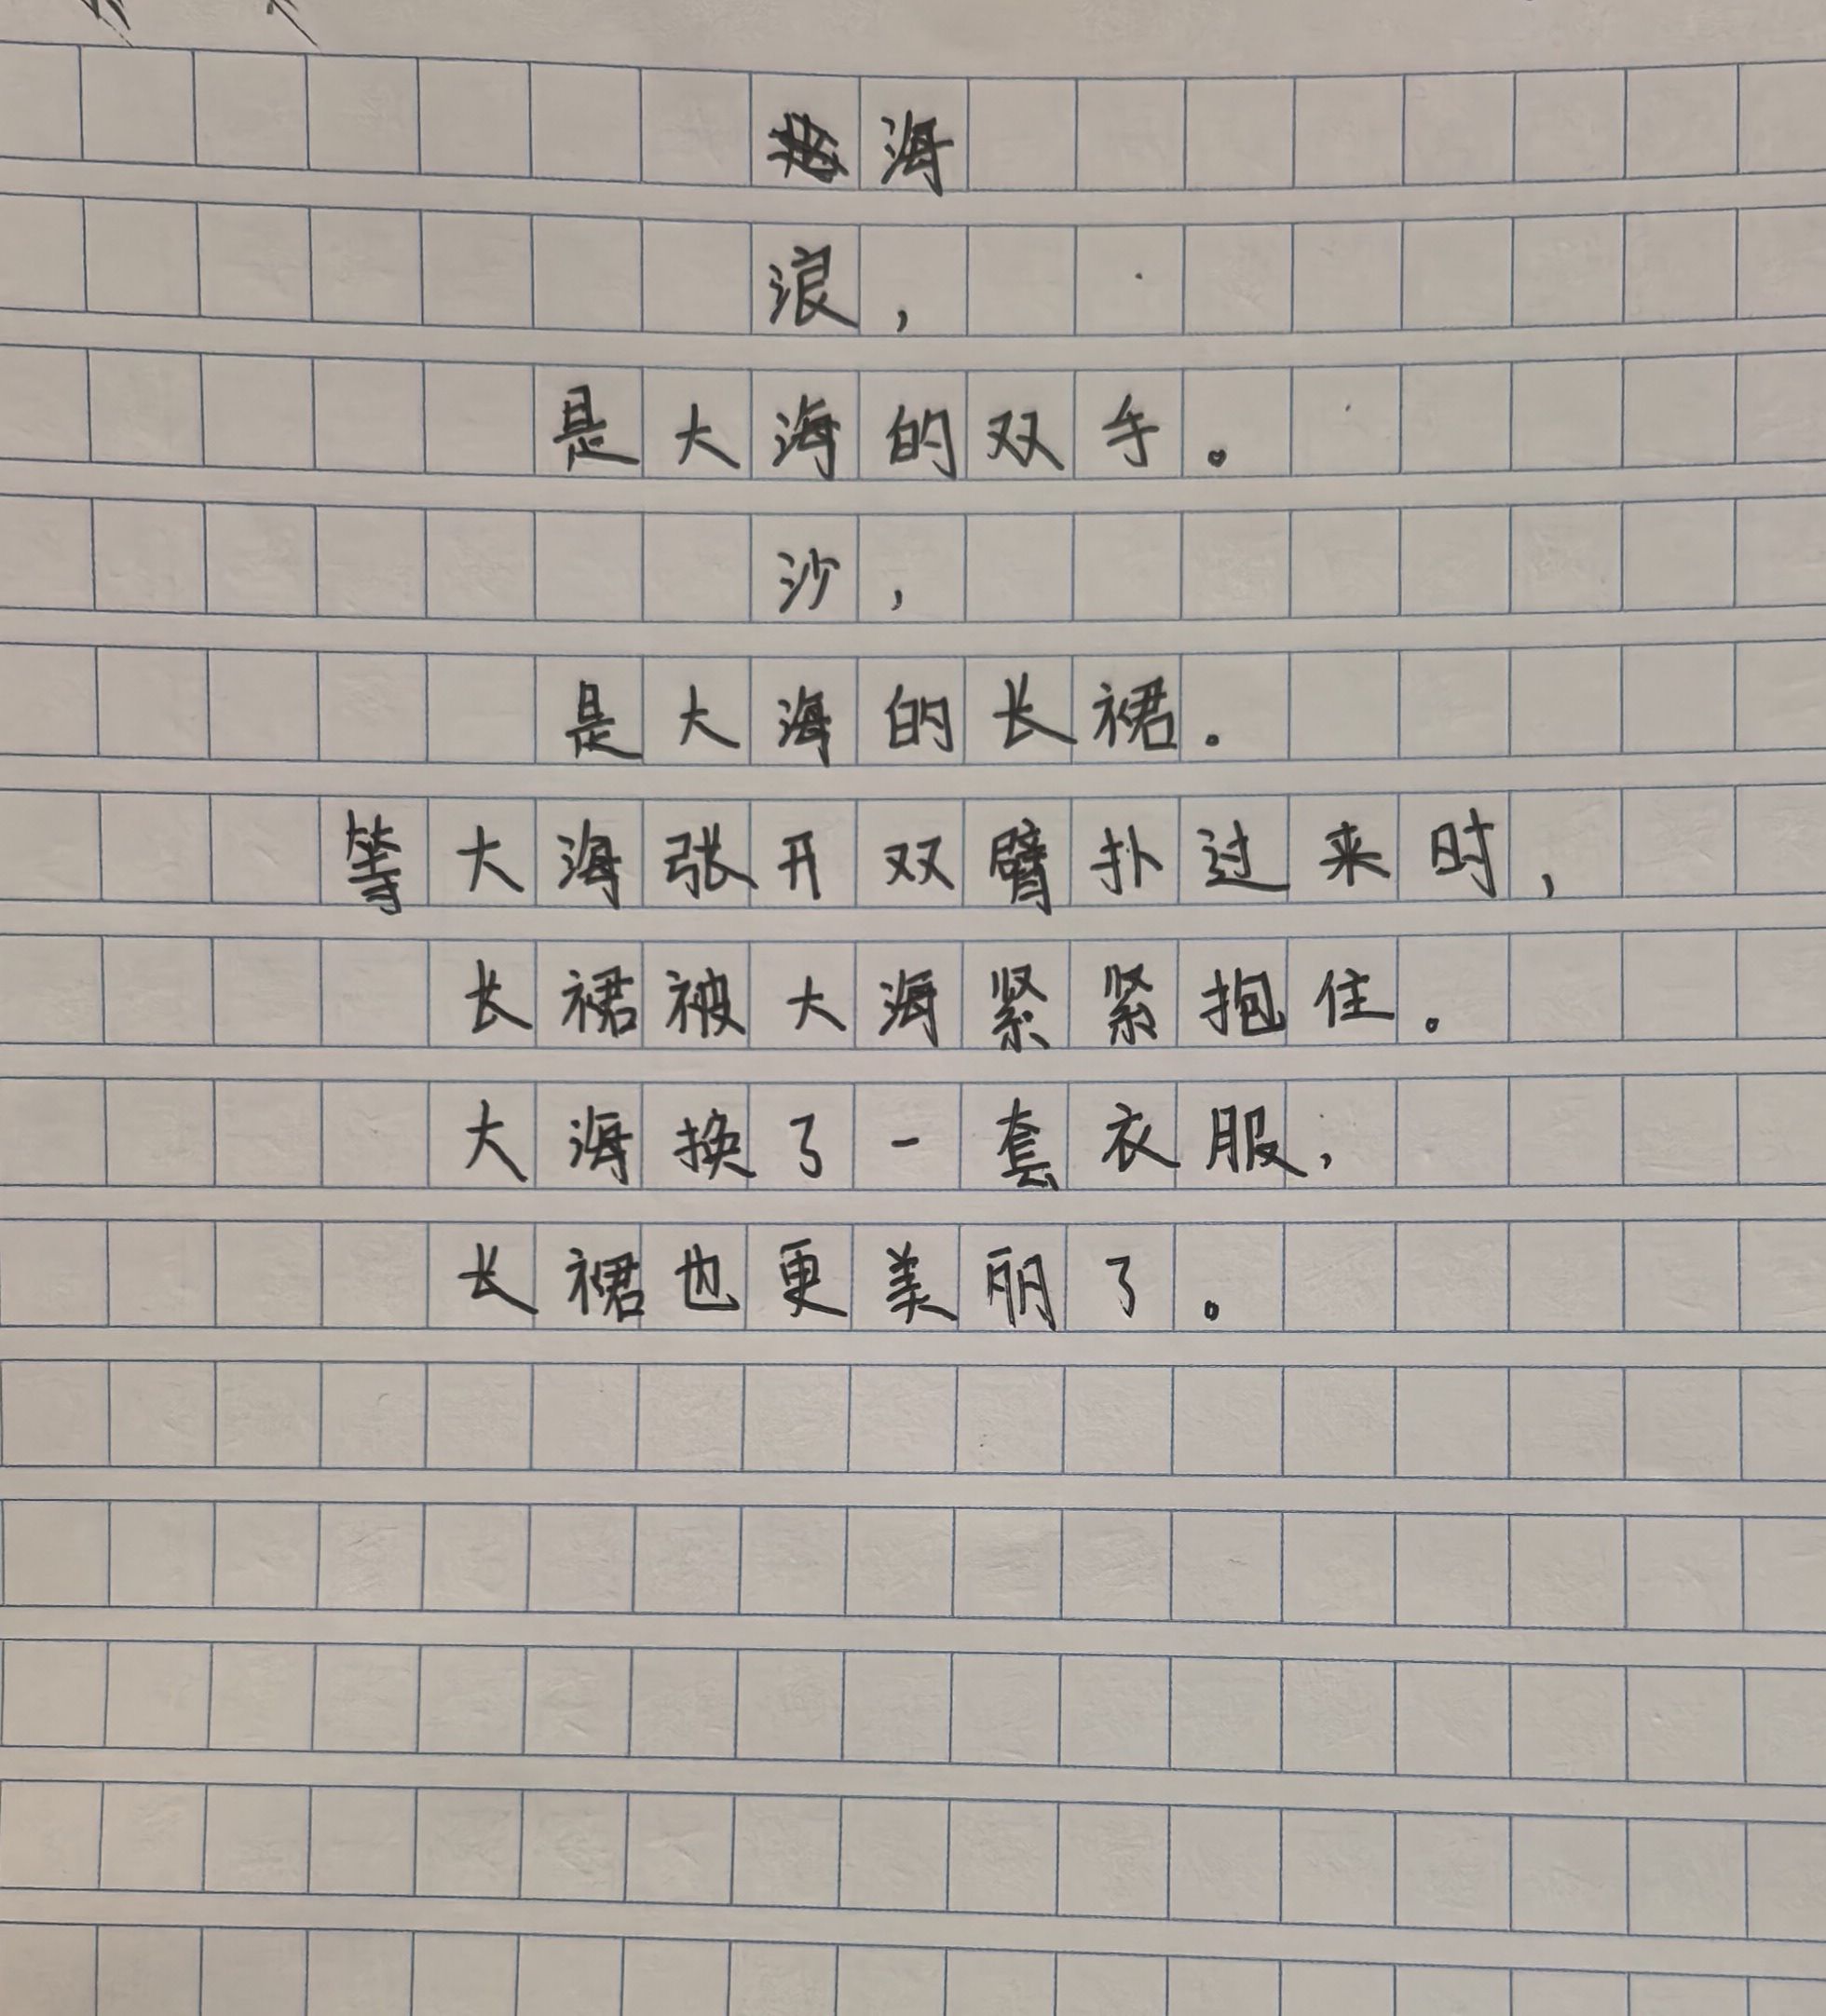 海
浪，
是大海的双手。
沙，
是大海的长裙。
等大海张开双臂扑过来时，
长裙被大海紧紧抱住。
大海换了一套衣服，
长裙也更美丽了。